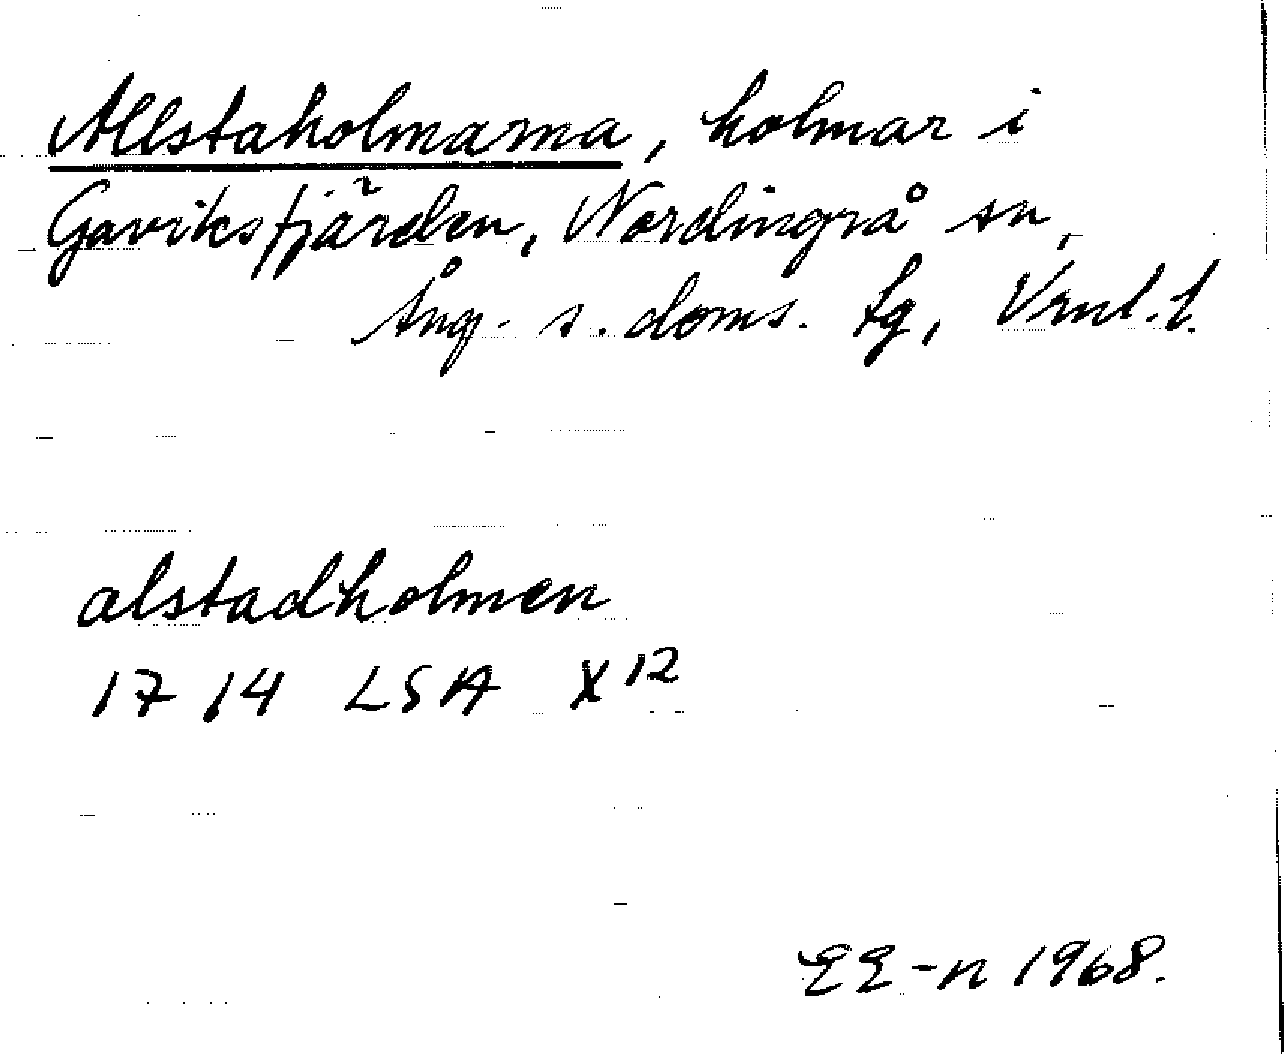 Allstaholmarna, holmar i
Gaviksfjärden, Nordingrå sn,
Ång. s. doms. tg, Vrnl. l.
alstadholmen
1714 LSA X 12
EE-n 1968.